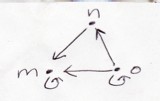 n
m
o